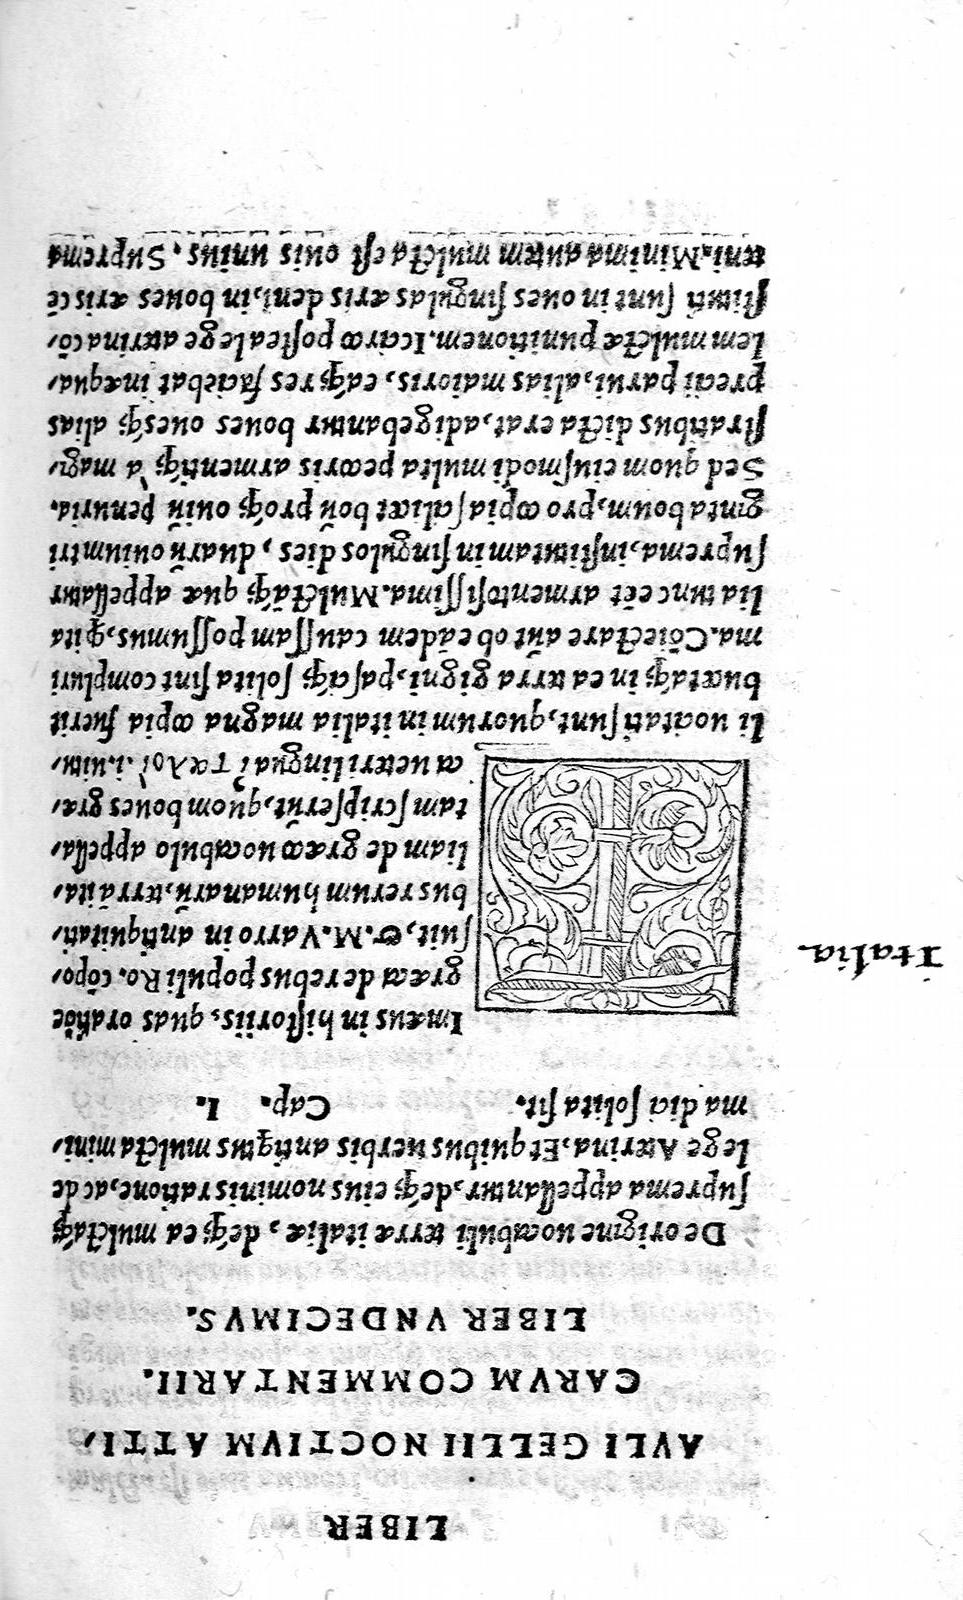 LIBER
AVLI GELLII NOCTIVM ATTI,
CARVM COMMENTARII.
LIBER VNDECIMVS.
De origine uocabuli terræ italiæ, déq; ea mulctáq;
suprema appellantur, déq; eius nominis ratione, ac de
lege Aterina. Et quibus uerbis antiqtus mulcta mini,
ma dici solita sit. Cap. I.
Italia
TImæus in historiis, quas oratiõe
græca de rebus populi Ro. cõpo,
suit, &. M. Varro in antiquitati,
bus rerum humanarũ, terrã ita,
liam de græco uocabulo appella,
tam scripserũt, quom boues græ,
ca ueteri lingua ἰταλοὶ .i. uitu,
li uocitati sunt, quorum in italia magna copia fuerit
bucetáq; in ea terra gigni, pasciq; solita sint compluri
ma. Cõiectare aũt ob eãdem caussam possumus, ꝙ ita
lia tunc eẽt armentosissima. Mulctáq; quæ appellatur
suprema, institutam in singulos dies, duarũ ouium tri
ginta boum, pro copia scilicet boũ próq; ouiũ penuria.
Sed quom eiusmodi multa pecoris armentiq; à magi,
stratibus dicta erat, adigebantur boues ouesq; alias
precii parui, alias maioris, eaq; res faciebat inæqua,
lem mulctæ punitionem. Icarco postea lege aterina cõ,
stituti sunt in oues singulas æris deni, in boues æris cẽ
teni. Minima autem mulcta est ouis unius. Suprema